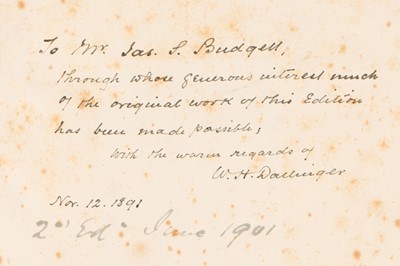 To Mr. Jas. S. Budgett,
through whose generous interest much
of the original work of this Edition
has been made possible;
With the warm regards of
W. H. Dallinger
Nov. 12. 1891
2ⁿᵈ Edⁿ June 1901